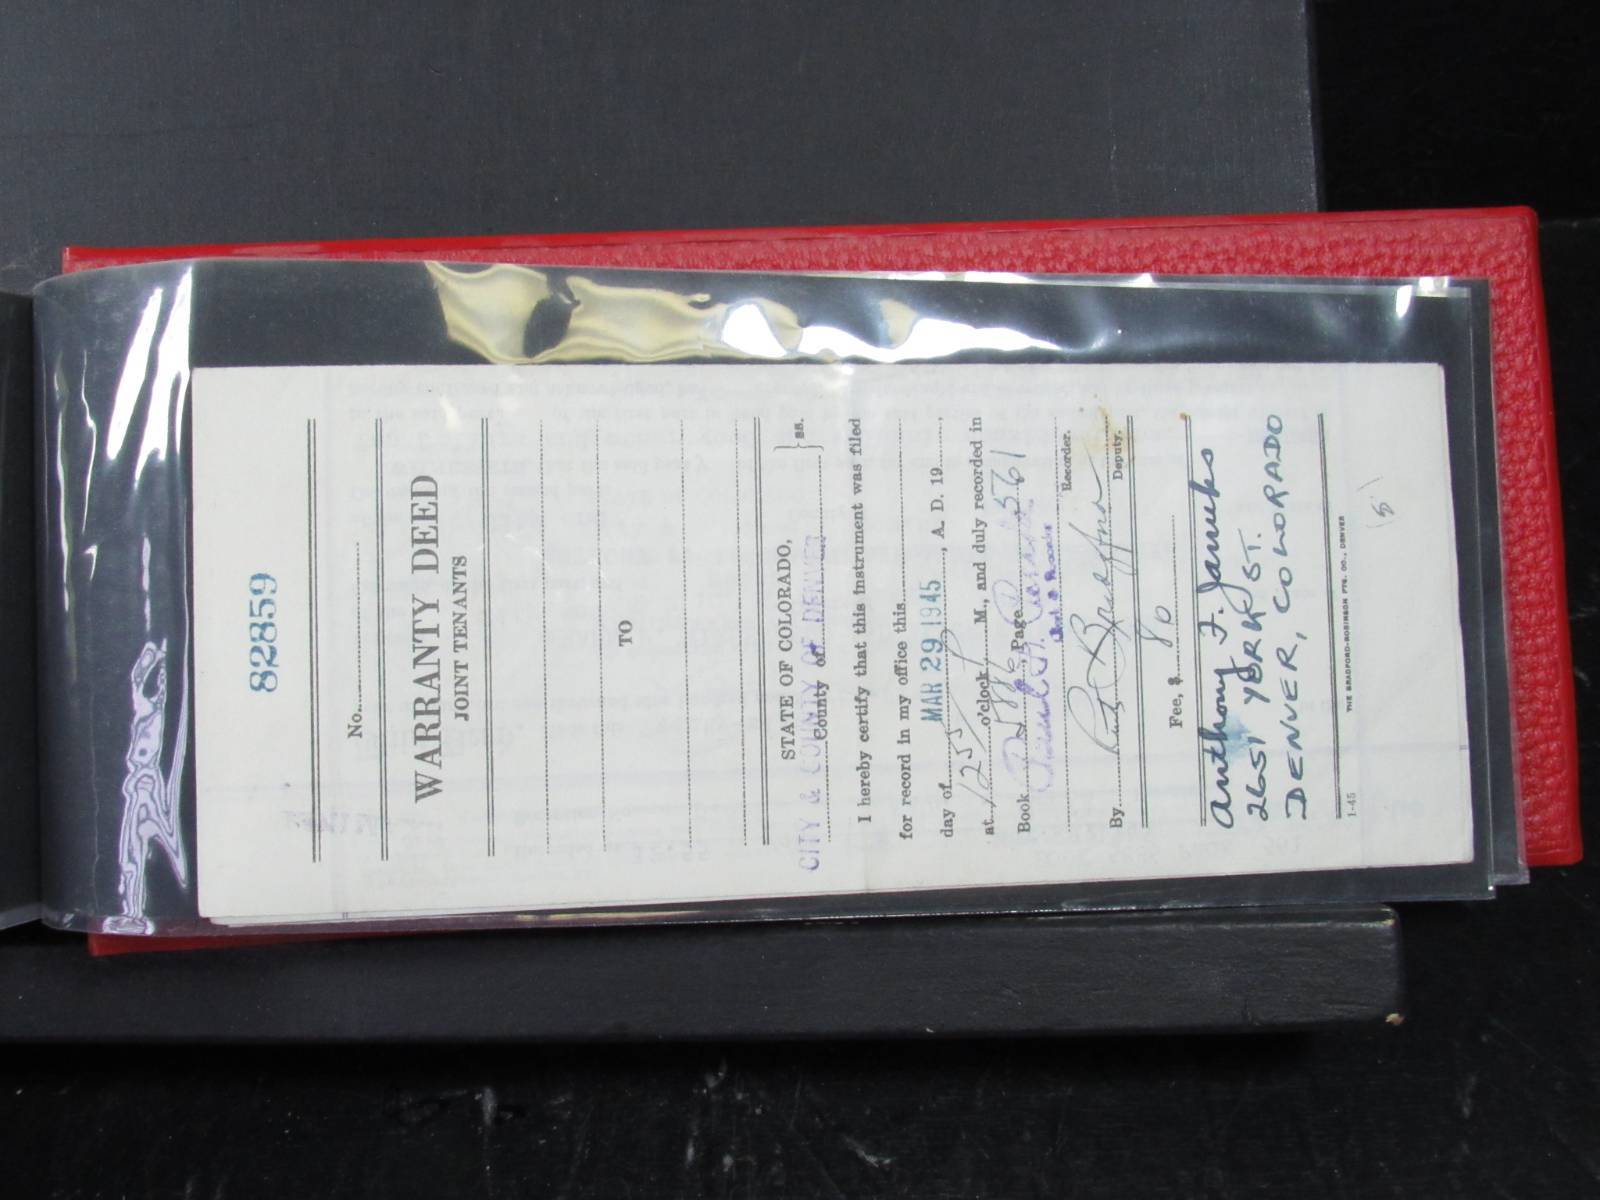 82859
No.
WARRANTY DEED
JOINT TENANTS
TO
STATE OF COLORADO,
CITY & COUNTY OF DENVER
County of
ss.
I hereby certify that this instrument was filed
for record in my office this
day of MAR 29 1945, A. D. 19
at 1255 o'clock P M., and duly recorded in
Book Page 561
Recorder.
By Bradford Deputy.
Fee, $ 80
Anthony F. Jameks
2651 YORK ST.
DENVER, COLORADO
1-45 THE BRADFORD-ROBINSON PTG. CO., DENVER